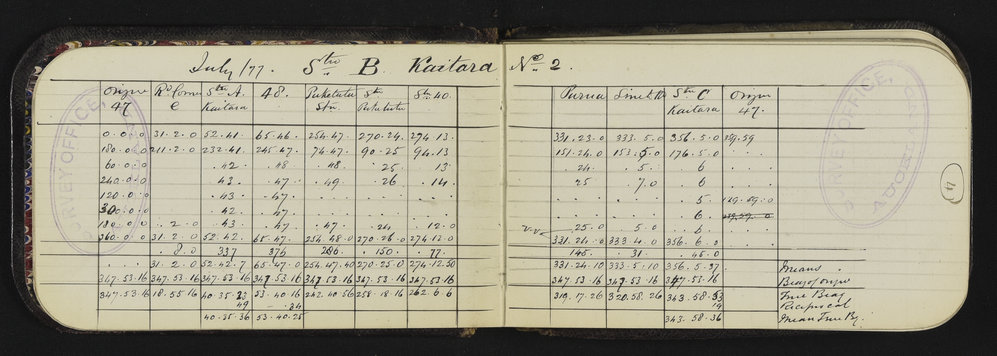 July/77. Stn B. Kaitara No 2.
Origin 47. Rd Corner C Stn A Kaitara 48. Puketutu Stn. Stn Puketutu Stn 40. Purua Smeltr Stn C Kaitara Origin 47.
0.0.0 31.2.0 52.41. 65.46. 254.47. 270.24. 274.13. 331.23.0 333.5.0 356.5.0 129.59
180.0.0 211.2.0 232.41. 245.47. 74.47. 90.25 94.13 151.24.0 153.5.0 176.5.0 . . .
60.0.0 . . . . 42 . 48 . 48 . 25 . 13 . 24. . 5. . 6 . . .
240.0.0 . . . . 43. . 47 . 49 . 26 . 14. . 25 . 7.0 . 6 . . .
120.0.0 . . . . 43 . 47. . . . . . . . . . . . . . 5. 129.59.0
300.0.0 . . . . 42 . 47. . . . . . . . . . . . . . 6. 129.59.0
180.0.0 . 2.0 . 43 . 47 . 47. . 24 . 12.0 . 25.0 . 5.0 . 6 . . .
360.0.0 31.2.0 52.42. 65.47. 254.48.0 270.26.0 274.12.0 331.24.0 333.4.0 356.6.0 . . .
337 376 286 150. 77. 145. . 31. . 45.0
31.2.0 52.42.7 65.47.0 254.47.40 270.25.0 274.12.50 331.24.10 333.5.10 356.5.37. Means .
347.53.16 347.53.16 347.53.16 347.53.16 347.53.16 347.53.16 347.53.16 347.53.16 347.53.16 347.53.16 Bearg Origin
347.53.16 18.55.16 40.35.23 53.40.16 242.40.56 258.18.16 262.6.6 319.17.26 320.58.26 343.58.53 True Bearg
49 . 34 19 Reciprocal
40.35.36 53.40.25 343.58.36 Mean True Bg.
SURVEY OFFICE